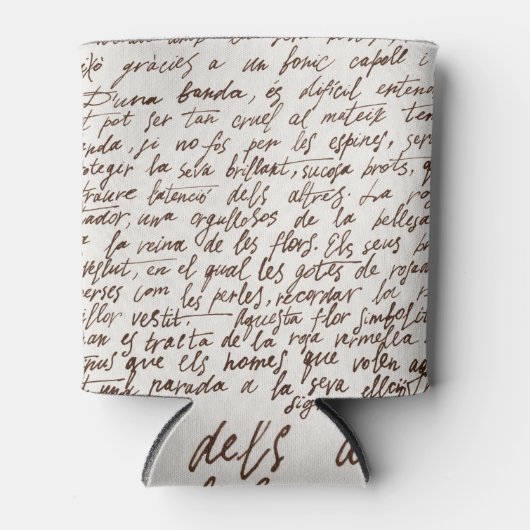 això gràcies a un bonic capell i
D'una banda, és difícil entend
t pot ser tan cruel al mateix tem
nda, si no fos per les espines, seri
otegir la seva brillant, sucosa brots, q
traure l'atenció dels altres. La ro
ador, una orgullosos de la bellesa
a la reina de les flors. Els seus p
vellut, en el qual les gotes de rosad
erses com les perles, recordar la
illor vestit. Aquesta flor simbolit
uan es tracta de la rosa vermella
nus que els homes que volen ag
t una parada a la seva elecció
sig
dels a